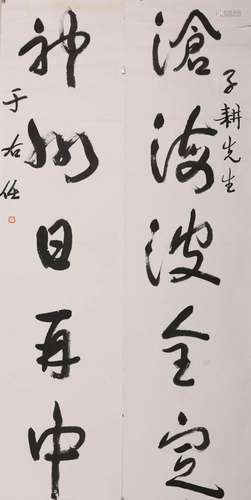 子耕先生
滄海波全定
神州日再中
于右任